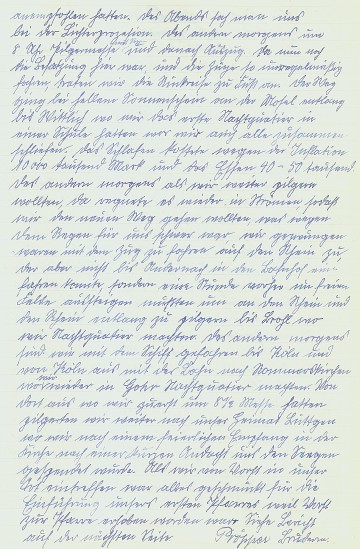 anempfohlen hatten. Des Abends sah man uns
bei der Lichterprozession. Des andern morgens um
8 Uhr Pilgermesse und danach Auszug. Da nun noch
die Besatzung hier war und die Züge so unregelmäßig
fuhren, traten wir die Rückreise zu Fuß an. Der Weg
ging bei hellem Sonnenschein an der Mosel entlang
bis Wittlich wo wir das erste Nachtquatier in
einer Schule hatten wo wir auch alle zusammen
schliefen. Das Schlafen kostete wegen der Inflation
10 000 tausend Mark und das Essen 40 - 50 tausend.
Des andern morgens als wir weiter pilgern
wollten, da regnete es wieder in Strömen, sodaß
wir den neuen Weg gehen wollten was wegen
dem Regen für uns schwer war wir gezwungen
waren mit dem Zug zu fahren auf den Rhein zu
der aber nicht bis Andernach in den Bahnhof ein-
fahren konnte, sondern eine Stunde vorher im freien
Felde aussteigen mußten um an den Rhein und
den Rhein entlang zu pilgern bis Brohl wo
wir Nachtquatier machten. Des andern morgens
sind wir mit dem Schiff gefahren bis Köln und
von Köln aus mit der Bahn nach Rommerskirchen
wo wir weiter in Gohr Nachtquatier machten. Von
dort aus wo wir zuerst um 8 ½ Messe hatten
pilgerten wir weiter nach unser Heimat Büttgen
wo wir nach einem feierlichen Empfang in der
Kirche nach einer kurzen Andacht mit dem Seegen
gespendet wurde. Als wir von Vorst in unser
Ort eintrafen war alles geschmückt für die
Einführung unsers ersten Pfarrers weil Vorst
zur Pfarre erhoben worden war. Siehe Bericht
auf der nächsten Seite